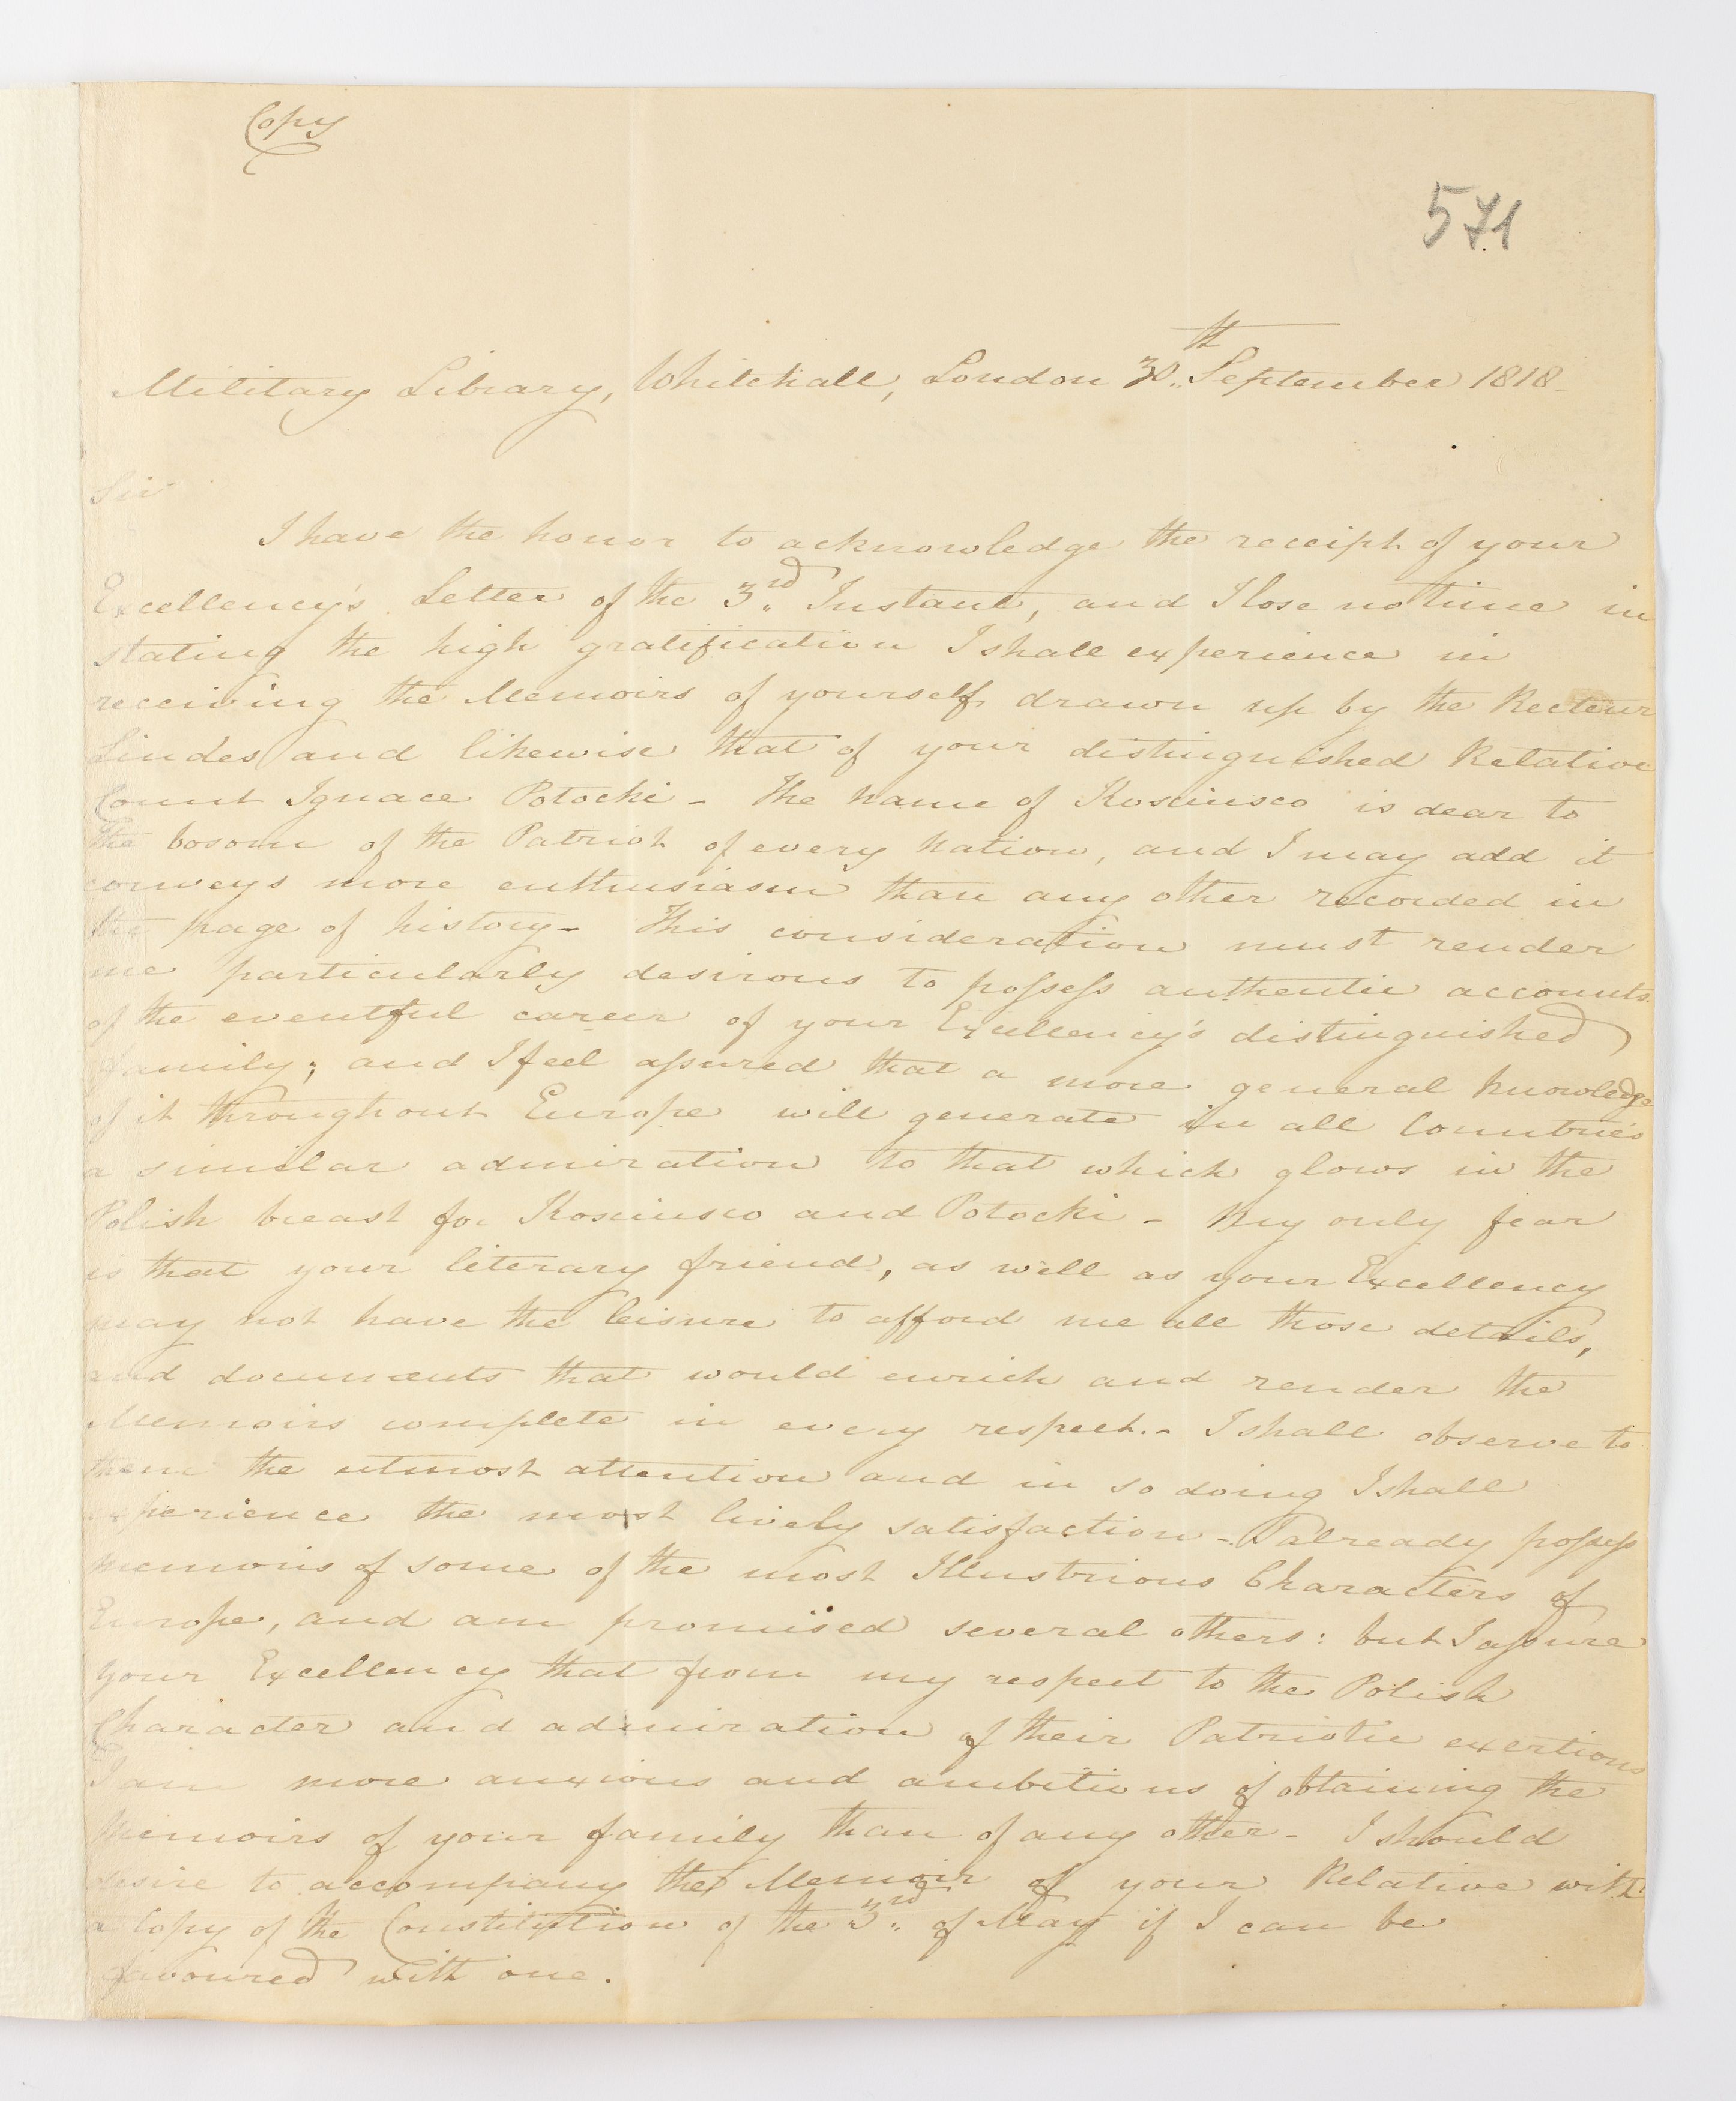 Copy
571
Military Library, Whitehall, London 30th September 1818-
Sir
I have the honor to acknowledge the receipt of your
Excellency's Letter of the 3rd Instant, and I lose no time in
stating the high gratification I shall experience in
receiving the Memoirs of yourself drawn up by the Recteur
Lindes and likewise that of your distinguished Relative
Count Ignace Potocki - The name of Kosciusco is dear to
the bosom of the Patriot of every Nation, and I may add it
conveys more enthusiasm than any other recorded in
the page of history - This consideration must render
me particularly desirous to possess authentic accounts
of the eventful career of your Excellency's distinguished
family; and I feel assured that a more general knowledge
of it throughout Europe will generate in all Countries
a similar admiration to that which glows in the
Polish breast for Kosciusco and Potocki - My only fear
is that your literary friend, as well as your Excellency
may not have the leisure to afford me all those details,
and documents that would enrich and render the
Memoirs complete in every respect. - I shall observe to
them the utmost attention and in so doing I shall
experience the most lively satisfaction - I already possess
memoirs of some of the most Illustrious Characters of
Europe, and am promised several others: but I assure
your Excellency that from my respect to the Polish
Character and admiration of their Patriotic exertions
I am more anxious and ambitious of obtaining the
Memoirs of your family than of any other - I should
desire to accompany the Memoir of your Relative with
a Copy of the Constitution of the 3rd of May if I can be
favoured with one.